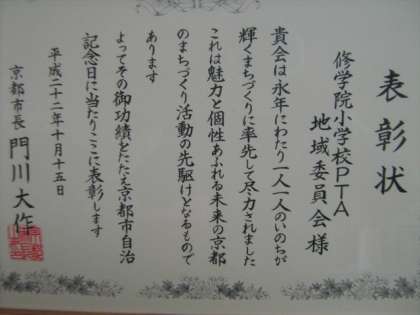 表彰状
修学院小学校PTA
地域委員会様
貴会は永年にわたり一人一人のいのちが
輝くまちづくりに率先して尽力されました
これは魅力と個性あふれる未来の京都
のまちづくり活動の先駆けとなるもので
あります
よってその御功績をたたえ京都市自治
記念日に当たりここに表彰します
平成二十二年十月十五日
京都市長 門川大作